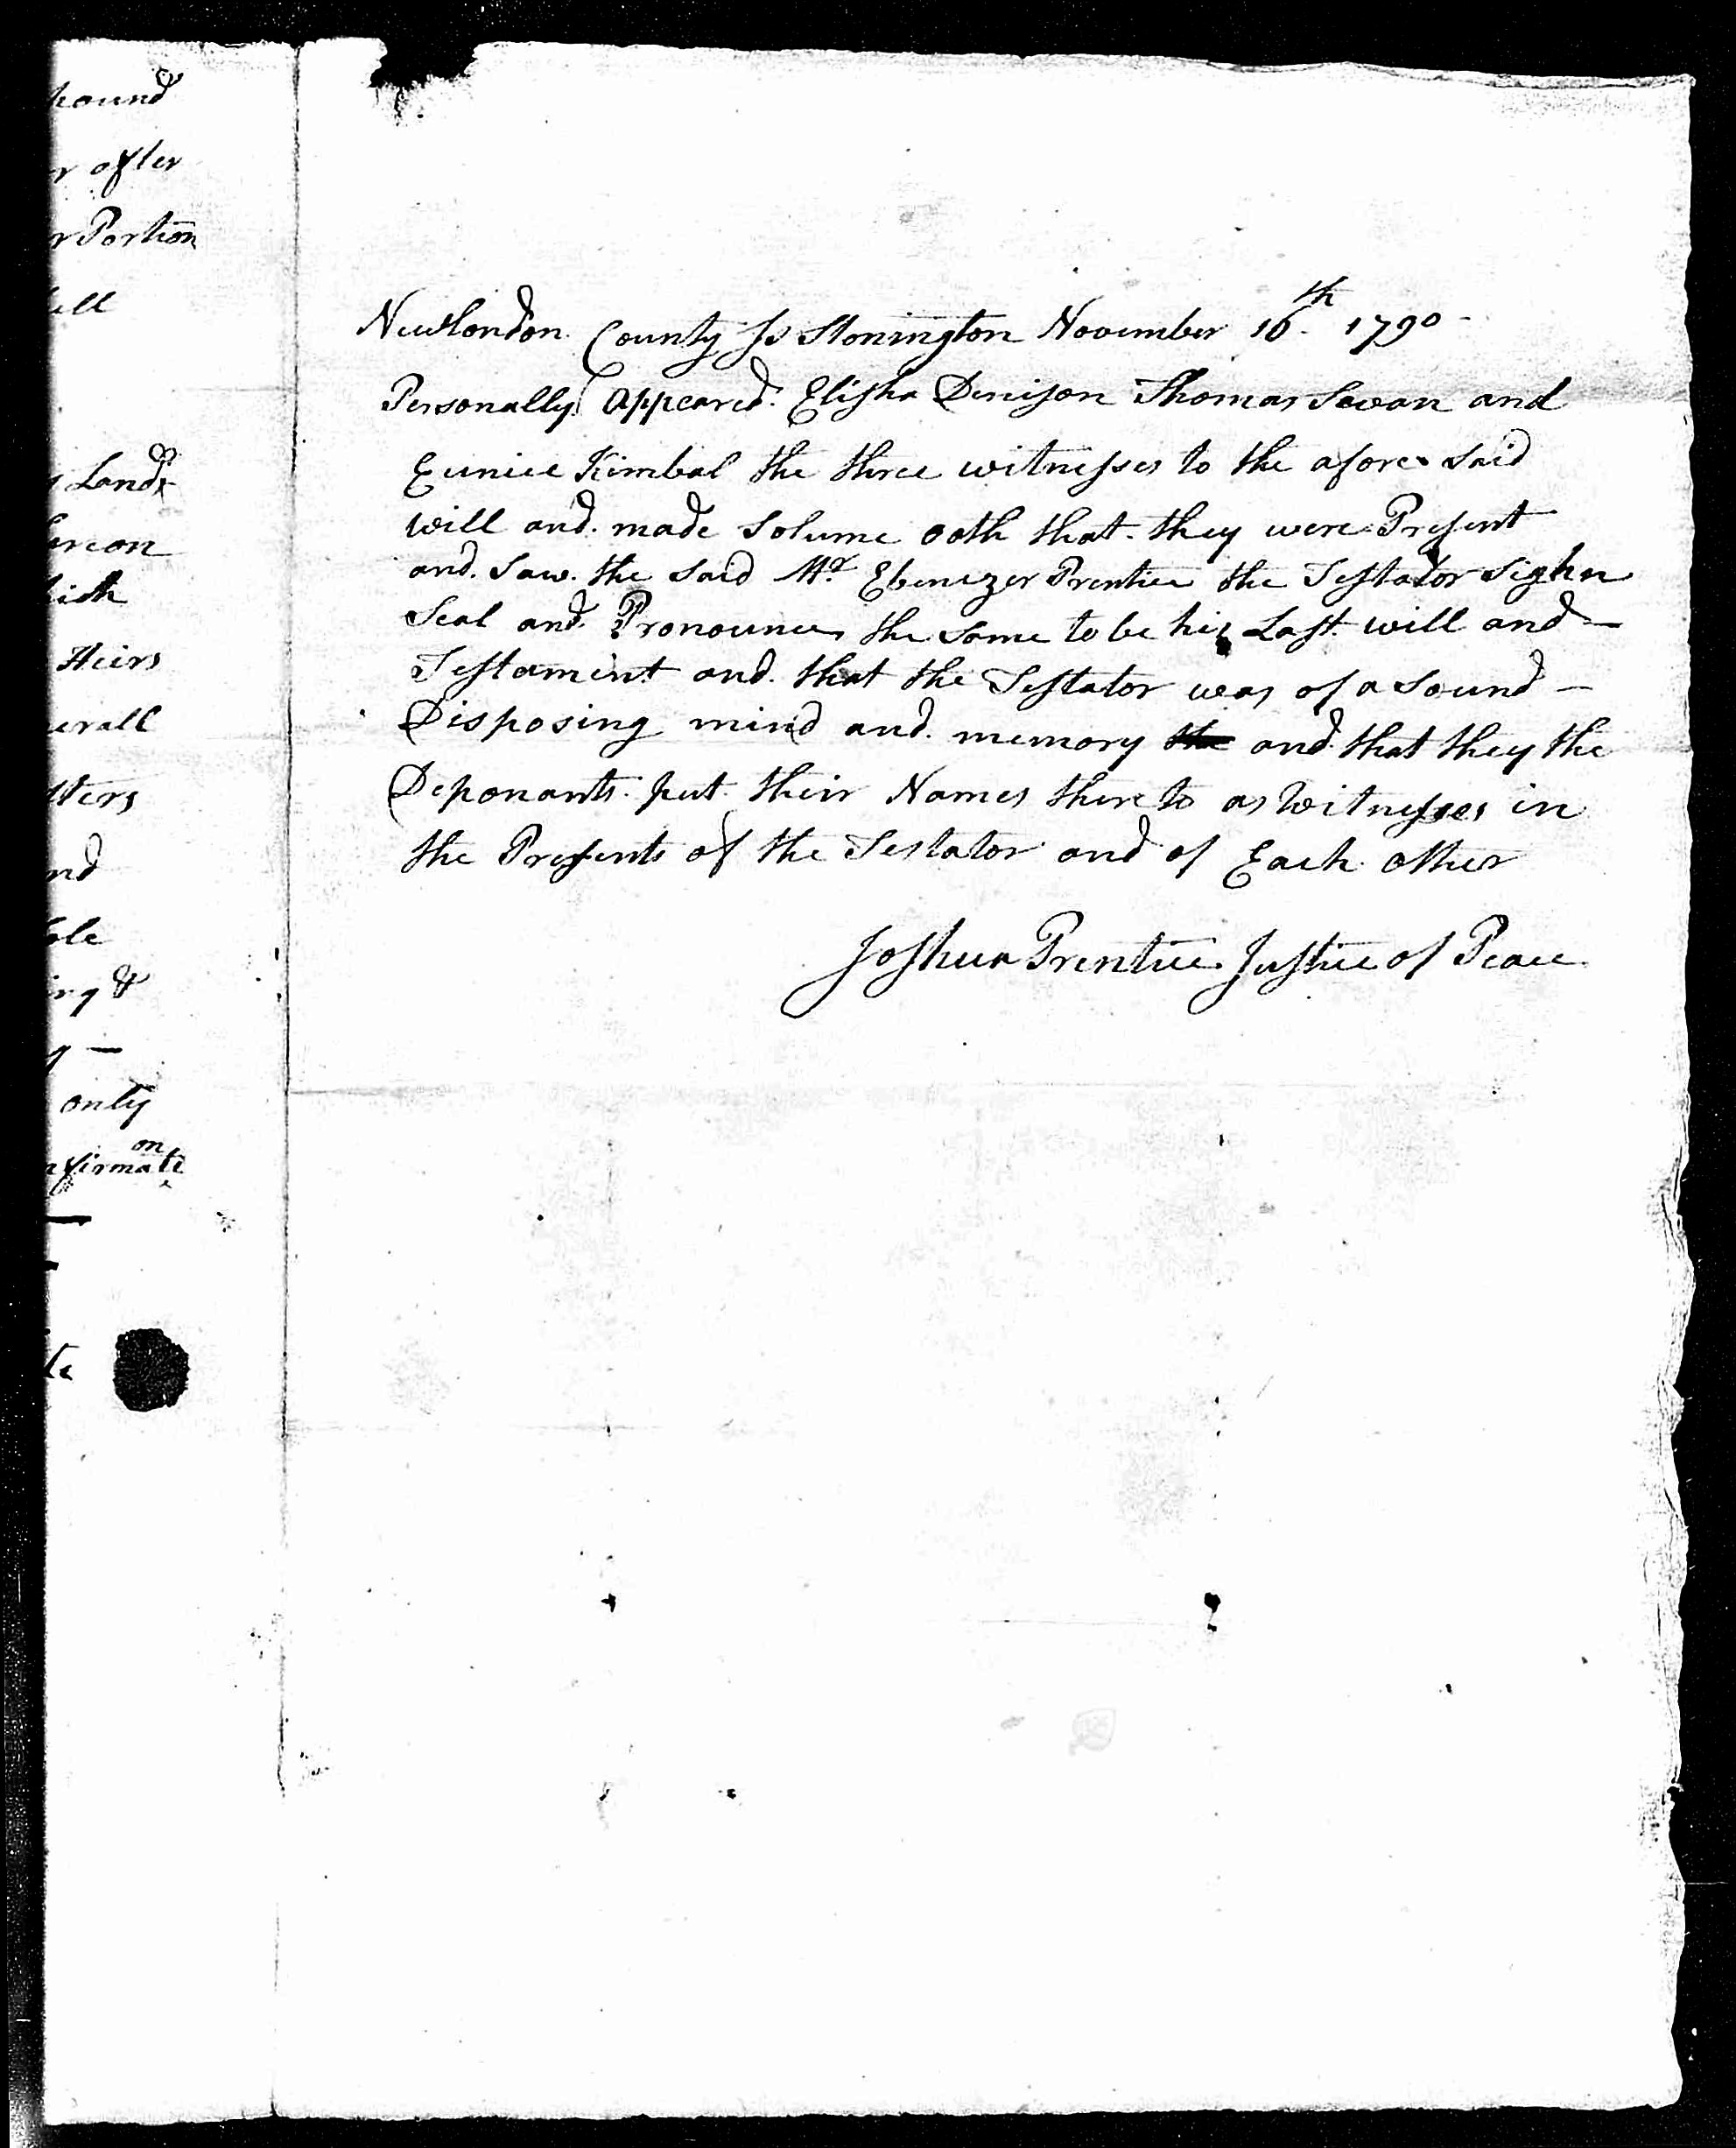 hound
r after
r Portion
ell
s Lands
ereon
lich
Heirs
erall
tters
nd
ole
ing &
g —
only
nfirmati on
te
Newlondon County Ss Stonington November 16th 1790
Personally Appeared Elisha Denison Thomas Swan and
Eunice Kimbal the three witnesses to the afore said
will and made Solume oath that they were Present
and Saw the Said Mr Ebenezer Prentice the Testator Sighn
Seal and Pronounce the Same to be his Last will and —
Testament and that the Testator was of a Sound —
Disposing mind and memory the and that they the
Deponants put their Names there to as Witnesses in
the Presents of the Testator and of Each other
Joshua Prentice Justice of Peace